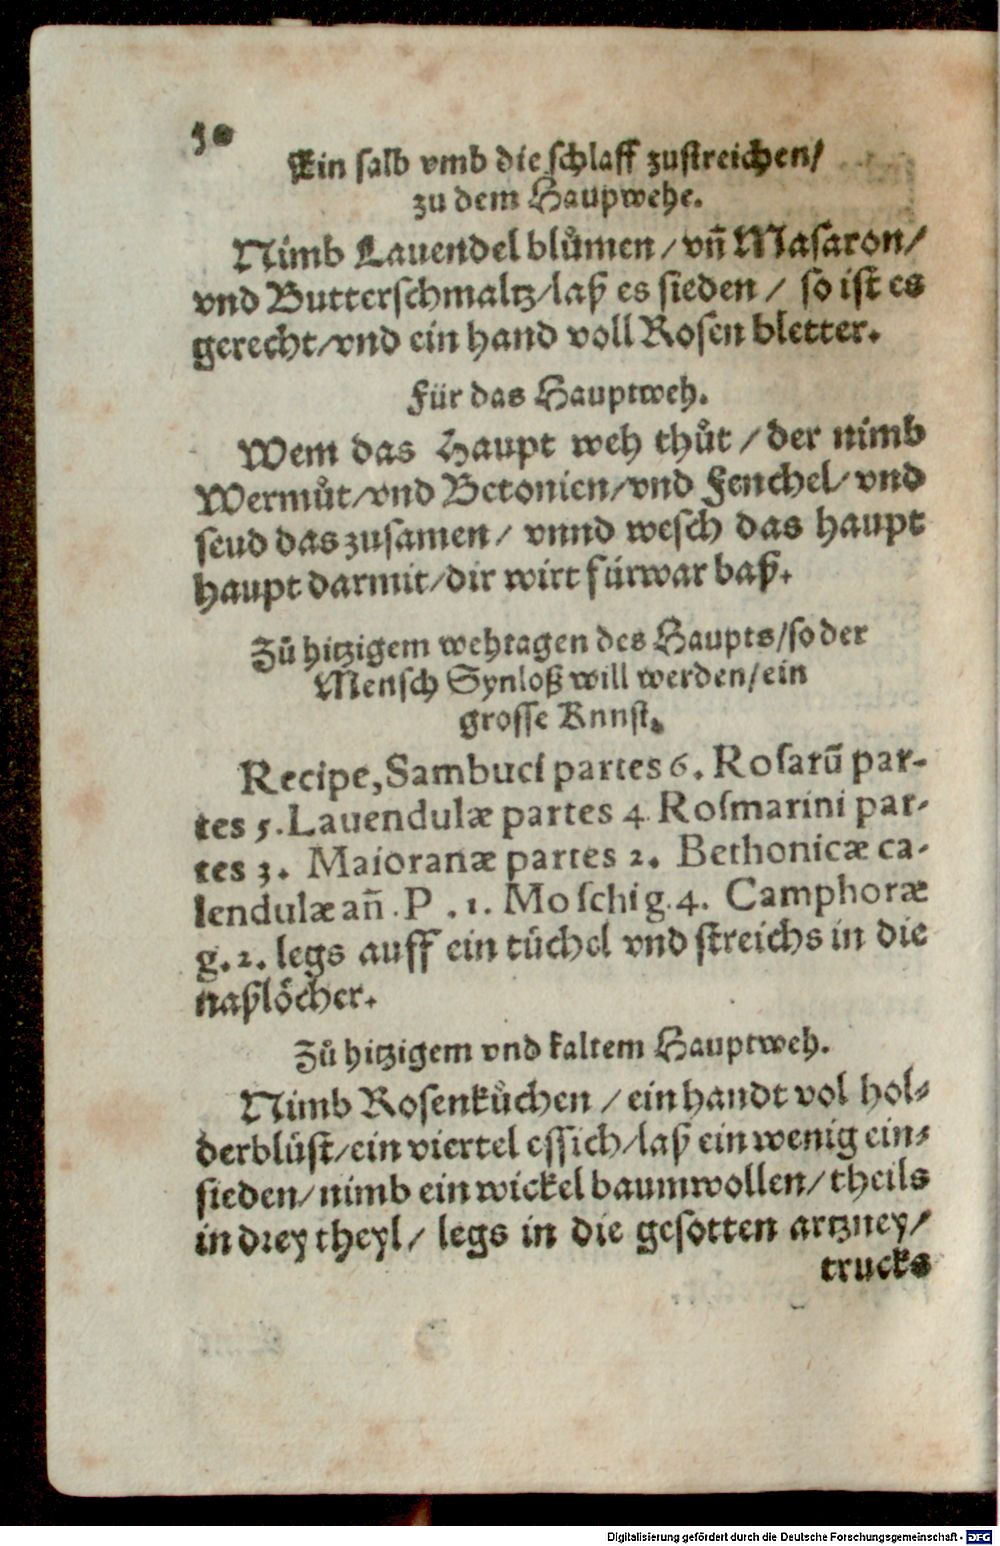 30
Ein salb vmb die schlaff zustreichen/
zu dem Haupwehe.
Nimb Lauendel blůmen / vñ Masaron/
vnd Butterschmaltz/laß es sieden / so ist es
gerecht/vnd ein hand voll Rosen bletter.
Für das Hauptweh.
Wem das Haupt weh thůt / der nimb
Wermůt/vnd Betonien/vnd Fenchel/vnd
seud das zusamen/ vnnd wesch das haupt
haupt darmit/dir wirt fürwar baß.
Zů hitzigem wehtagen des Haupts/so der
Mensch Synloß will werden/ein
grosse Knnst.
Recipe, Sambuci partes 6. Rosarũ par-
tes 5. Lauendulæ partes 4. Rosmarini par-
tes 3. Maioranæ partes 2. Bethonicæ ca-
lendulæ añ. P .1. Moschi g. 4. Camphoræ
g. 2. legs auff ein tüchel vnd streichs in die
naßlöcher.
Zů hitzigem vnd kaltem Hauptweh.
Nimb Rosenkůchen / ein handt vol hol-
derblüst/ein viertel essich/laß ein wenig ein-
sieden/nimb ein wickel baumwollen/theils
in drey theyl/ legs in die gesotten artzney/
trucks
Digitalisierung gefördert durch die Deutsche Forschungsgemeinschaft - DFG